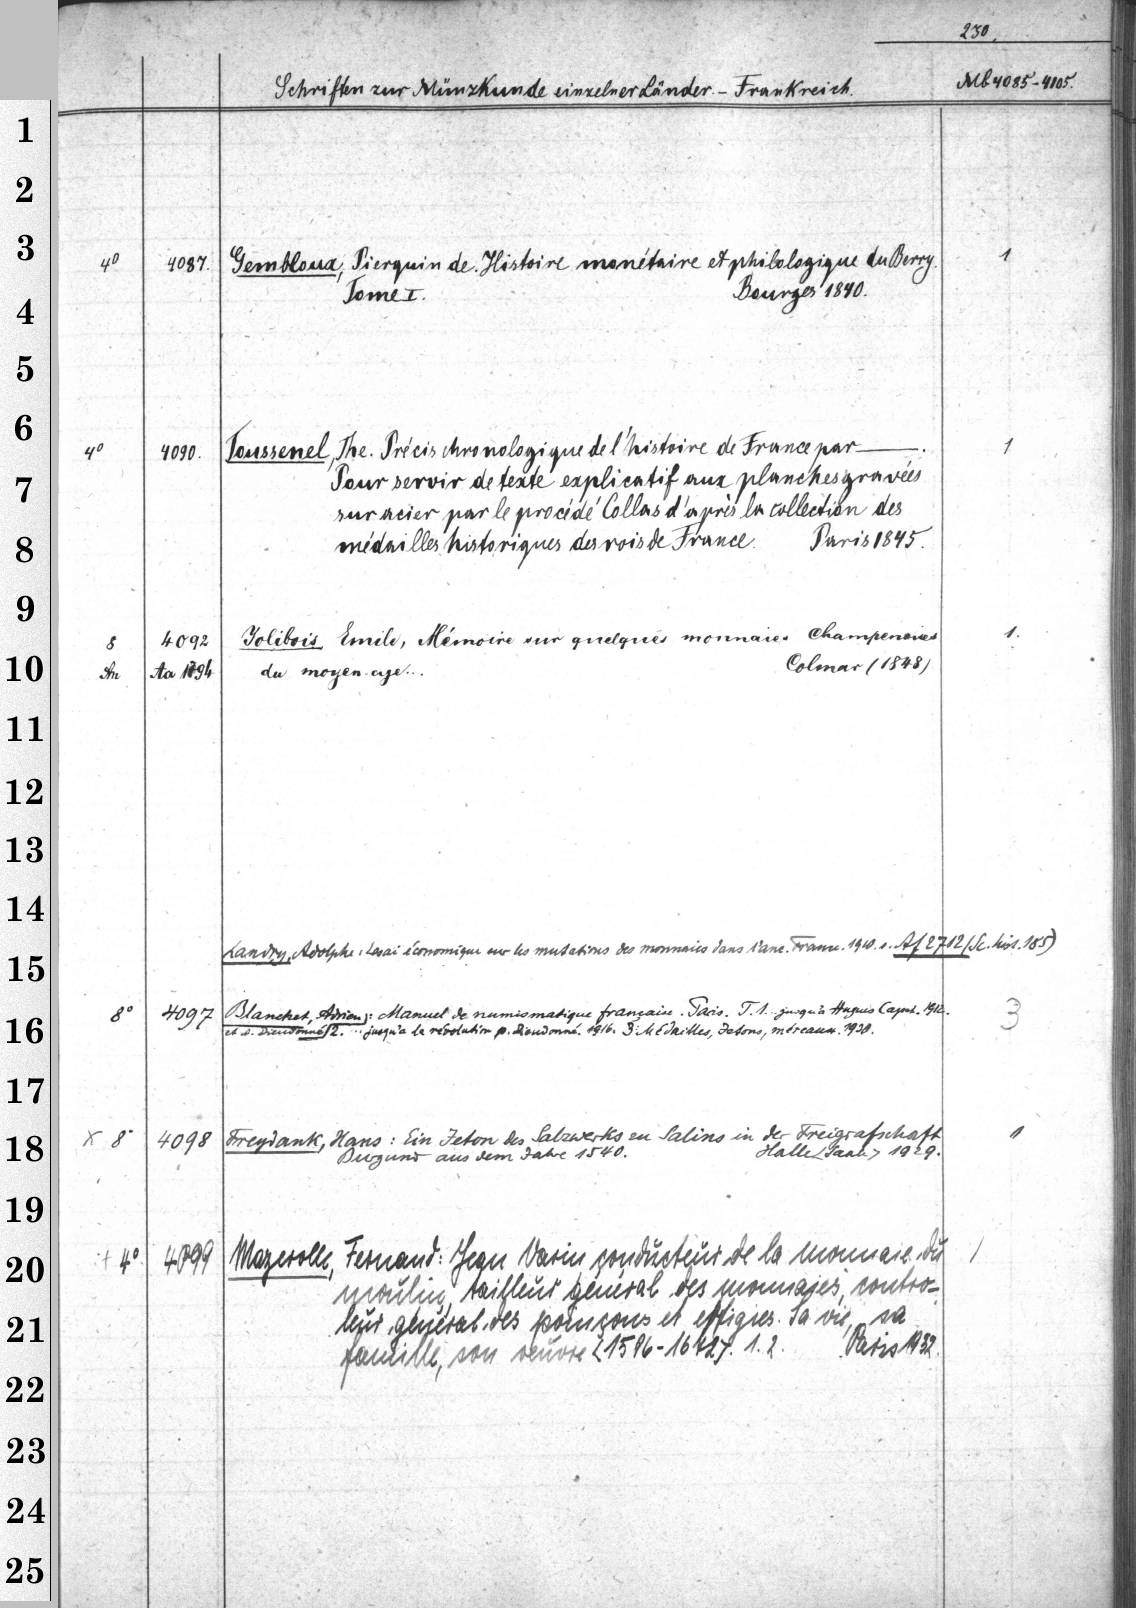 230.
Schriften zur Münzkunde einzelner Länder. – Frankreich. Mb 4085–4105.
1
2
3
4° 4087. Gembloux, Pierquin de. Histoire monétaire et philologique du Berry. 1
Tome I. Bourges 1840.
4
5
6
4° 4090. Toussenel, The. Précis chronologique de l'histoire de France par ———. 1
7
Pour servir de texte explicatif aux planches gravées
sur acier par le procédé Collas d'après la collection des
8
médailles historiques des rois de France. Paris 1845.
9
8 4092 Jolibois, Emile, Mémoire sur quelques monnaies champenoises 1.
10
An Aa 1794 du moyen-age... Colmar (1848)
11
12
13
14
Landry, Adolphe: Essai économique sur les mutations des monnaies dans l'anc. France. 1910. s. Af 2712 (Sc. hist. 185)
15
8° 4097 Blanchet, Adrien: Manuel de numismatique française. Paris. T. 1. jusqu'à Hugues Capet. 1912. 3
16
et A. Dieudonné 2. ... jusqu'à la révolution p. Dieudonné. 1916. 3. Médailles, Jetons, méreaux. 1930.
17
x 8° 4098 Freydank, Hans: Ein Jeton des Salzwerks zu Salins in der Freigrafschaft 1
18
Burgund aus dem Jahre 1540. Halle <Saale> 1929.
19
+ 4° 4099 Mazerolle, Fernand: Jean Varin conducteur de la monnaie du 1
20
moulin, tailleur général des monnaies, contro-
21
leur général des poinçons et effigies. Sa vie, sa
famille, son oeuvre 1. 2. Paris 1932.
22
23
24
25